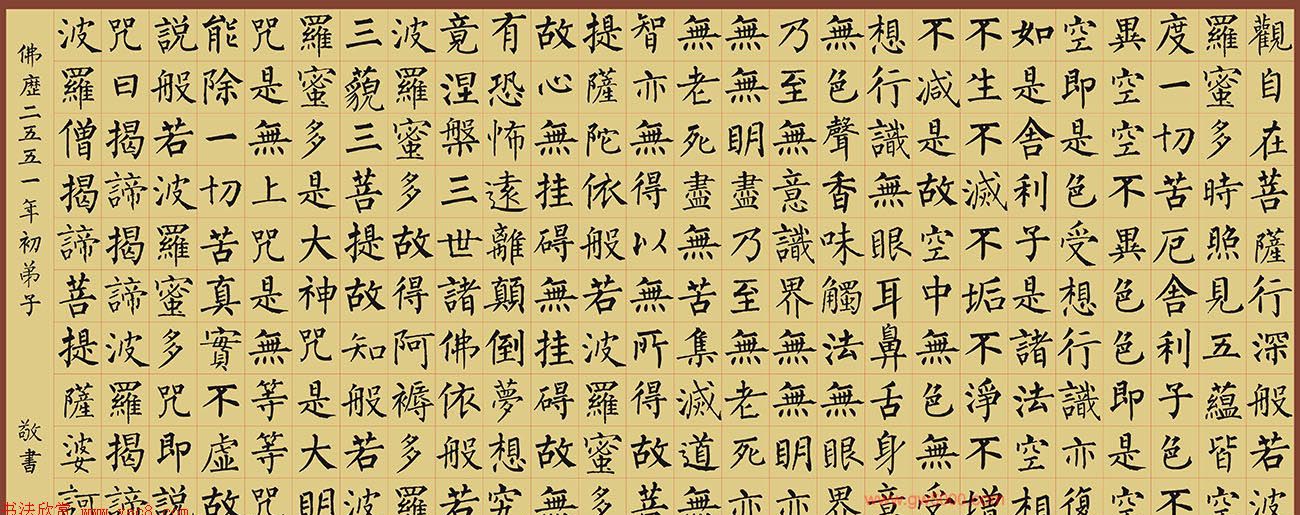 觀自在菩薩行深般若波
羅蜜多時照見五蘊皆空
度一切苦厄舍利子色不
異空空不異色色即是空
空即是色受想行識亦復
如是舍利子是諸法空相
不生不滅不垢不淨不增
不減是故空中無色無受
想行識無眼耳鼻舌身意
無色聲香味觸法無眼界
乃至無意識界無無明亦
無無明盡乃至無老死亦
無老死盡無苦集滅道無
智亦無得以無所得故菩
提薩陀依般若波羅蜜多
故心無挂碍無挂碍故無
有恐怖遠離顛倒夢想究
竟涅槃三世諸佛依般若
波羅蜜多故得阿褥多羅
三藐三菩提故知般若波
羅蜜多是大神咒是大明
咒是無上咒是無等等咒
能除一切苦真實不虛故
説般若波羅蜜多咒即説
咒曰揭諦揭諦波羅揭諦
波羅僧揭諦菩提薩婆訶
佛歷二五五一年初弟子
敬書
书法欣赏